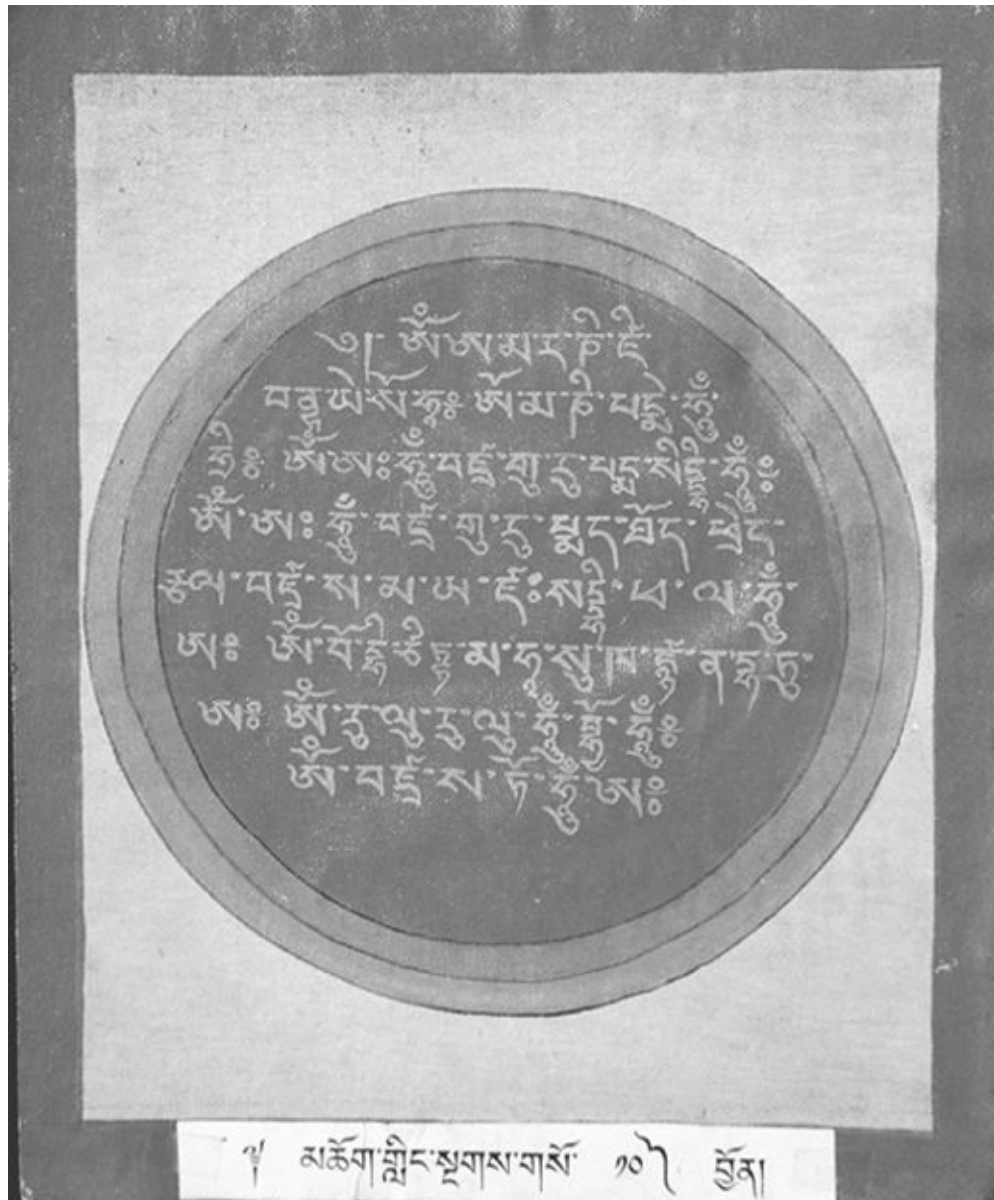 ༄། ཨོཾ་ཨ་མ་ར་ཎི་ཛི་
ཝནྟ་ཡེ་སོ་ཧཱ༔ ཨོ་མ་ཎི་པདྨེ་ཧཱུྃ་
ཧྲཱི༔ ཨོཾ་ཨཱ༔ཧཱུྃ་བཛྲ་གུ་རུ་པདྨ་སིདྡྷི་ཧཱུྃ༔
ཨོཾ་ཨཱ༔ ཧཱུྃ་བཛྲ་གུ་རུ་པྨད་ཐོད་ཕྲེང་
རྩལ་བཛྲ་ས་མ་ཡ་ཛ༔སིདྡྷི་ཕ་ལ་ཧཱུྃ་
ཨ༔ ཨོཾ་བོ་དྷི་ཙི་ཏྟ་མ་ཧཱ་སུ་ཁ་ཛྙཱ་ན་དྷཱ་ཏུ་
ཨ༔ ཨོཾ་རུ་ལུ་རུ་ལུ་ཧཱུྃ་བྷྱོ་ཧཱུྃ༔
ཨོཾ་བཛྲ་ས་ཏོ་ཧཱུྃ་ཨ༔
༈ མཆོག་གླིང་སྔགས་གསོ་ ༡༠ བྱོན།